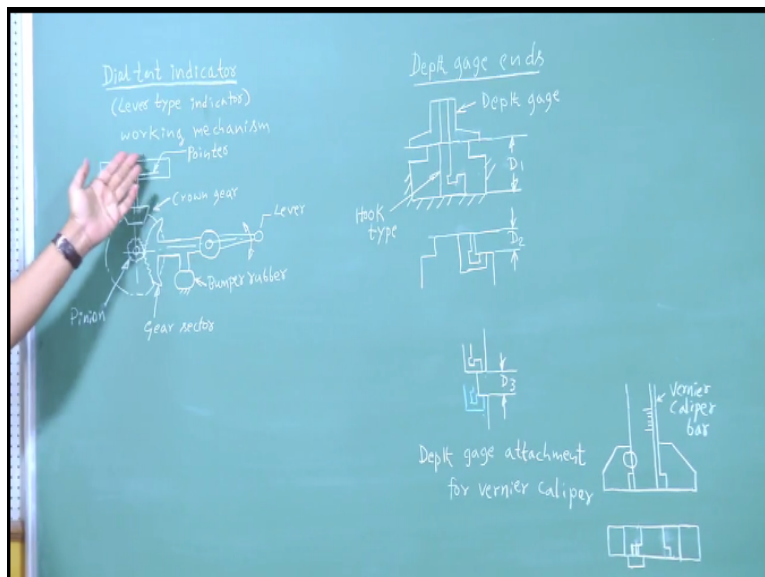 Dial test indicator
(Lever type indicator)
working mechanism
Pointer
Crown gear
Lever
Bumper rubber
Pinion
Gear sector
Depth gage ends
Depth gage
D1
Hook
type
D2
D3
Depth gage attachment
for vernier caliper
vernier
caliper
bar